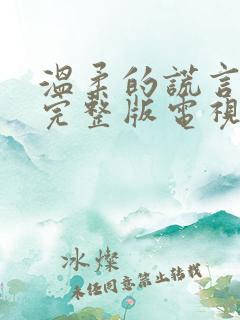 溫柔的謊言
完整版電視
冰燦
未任同意禁止转载